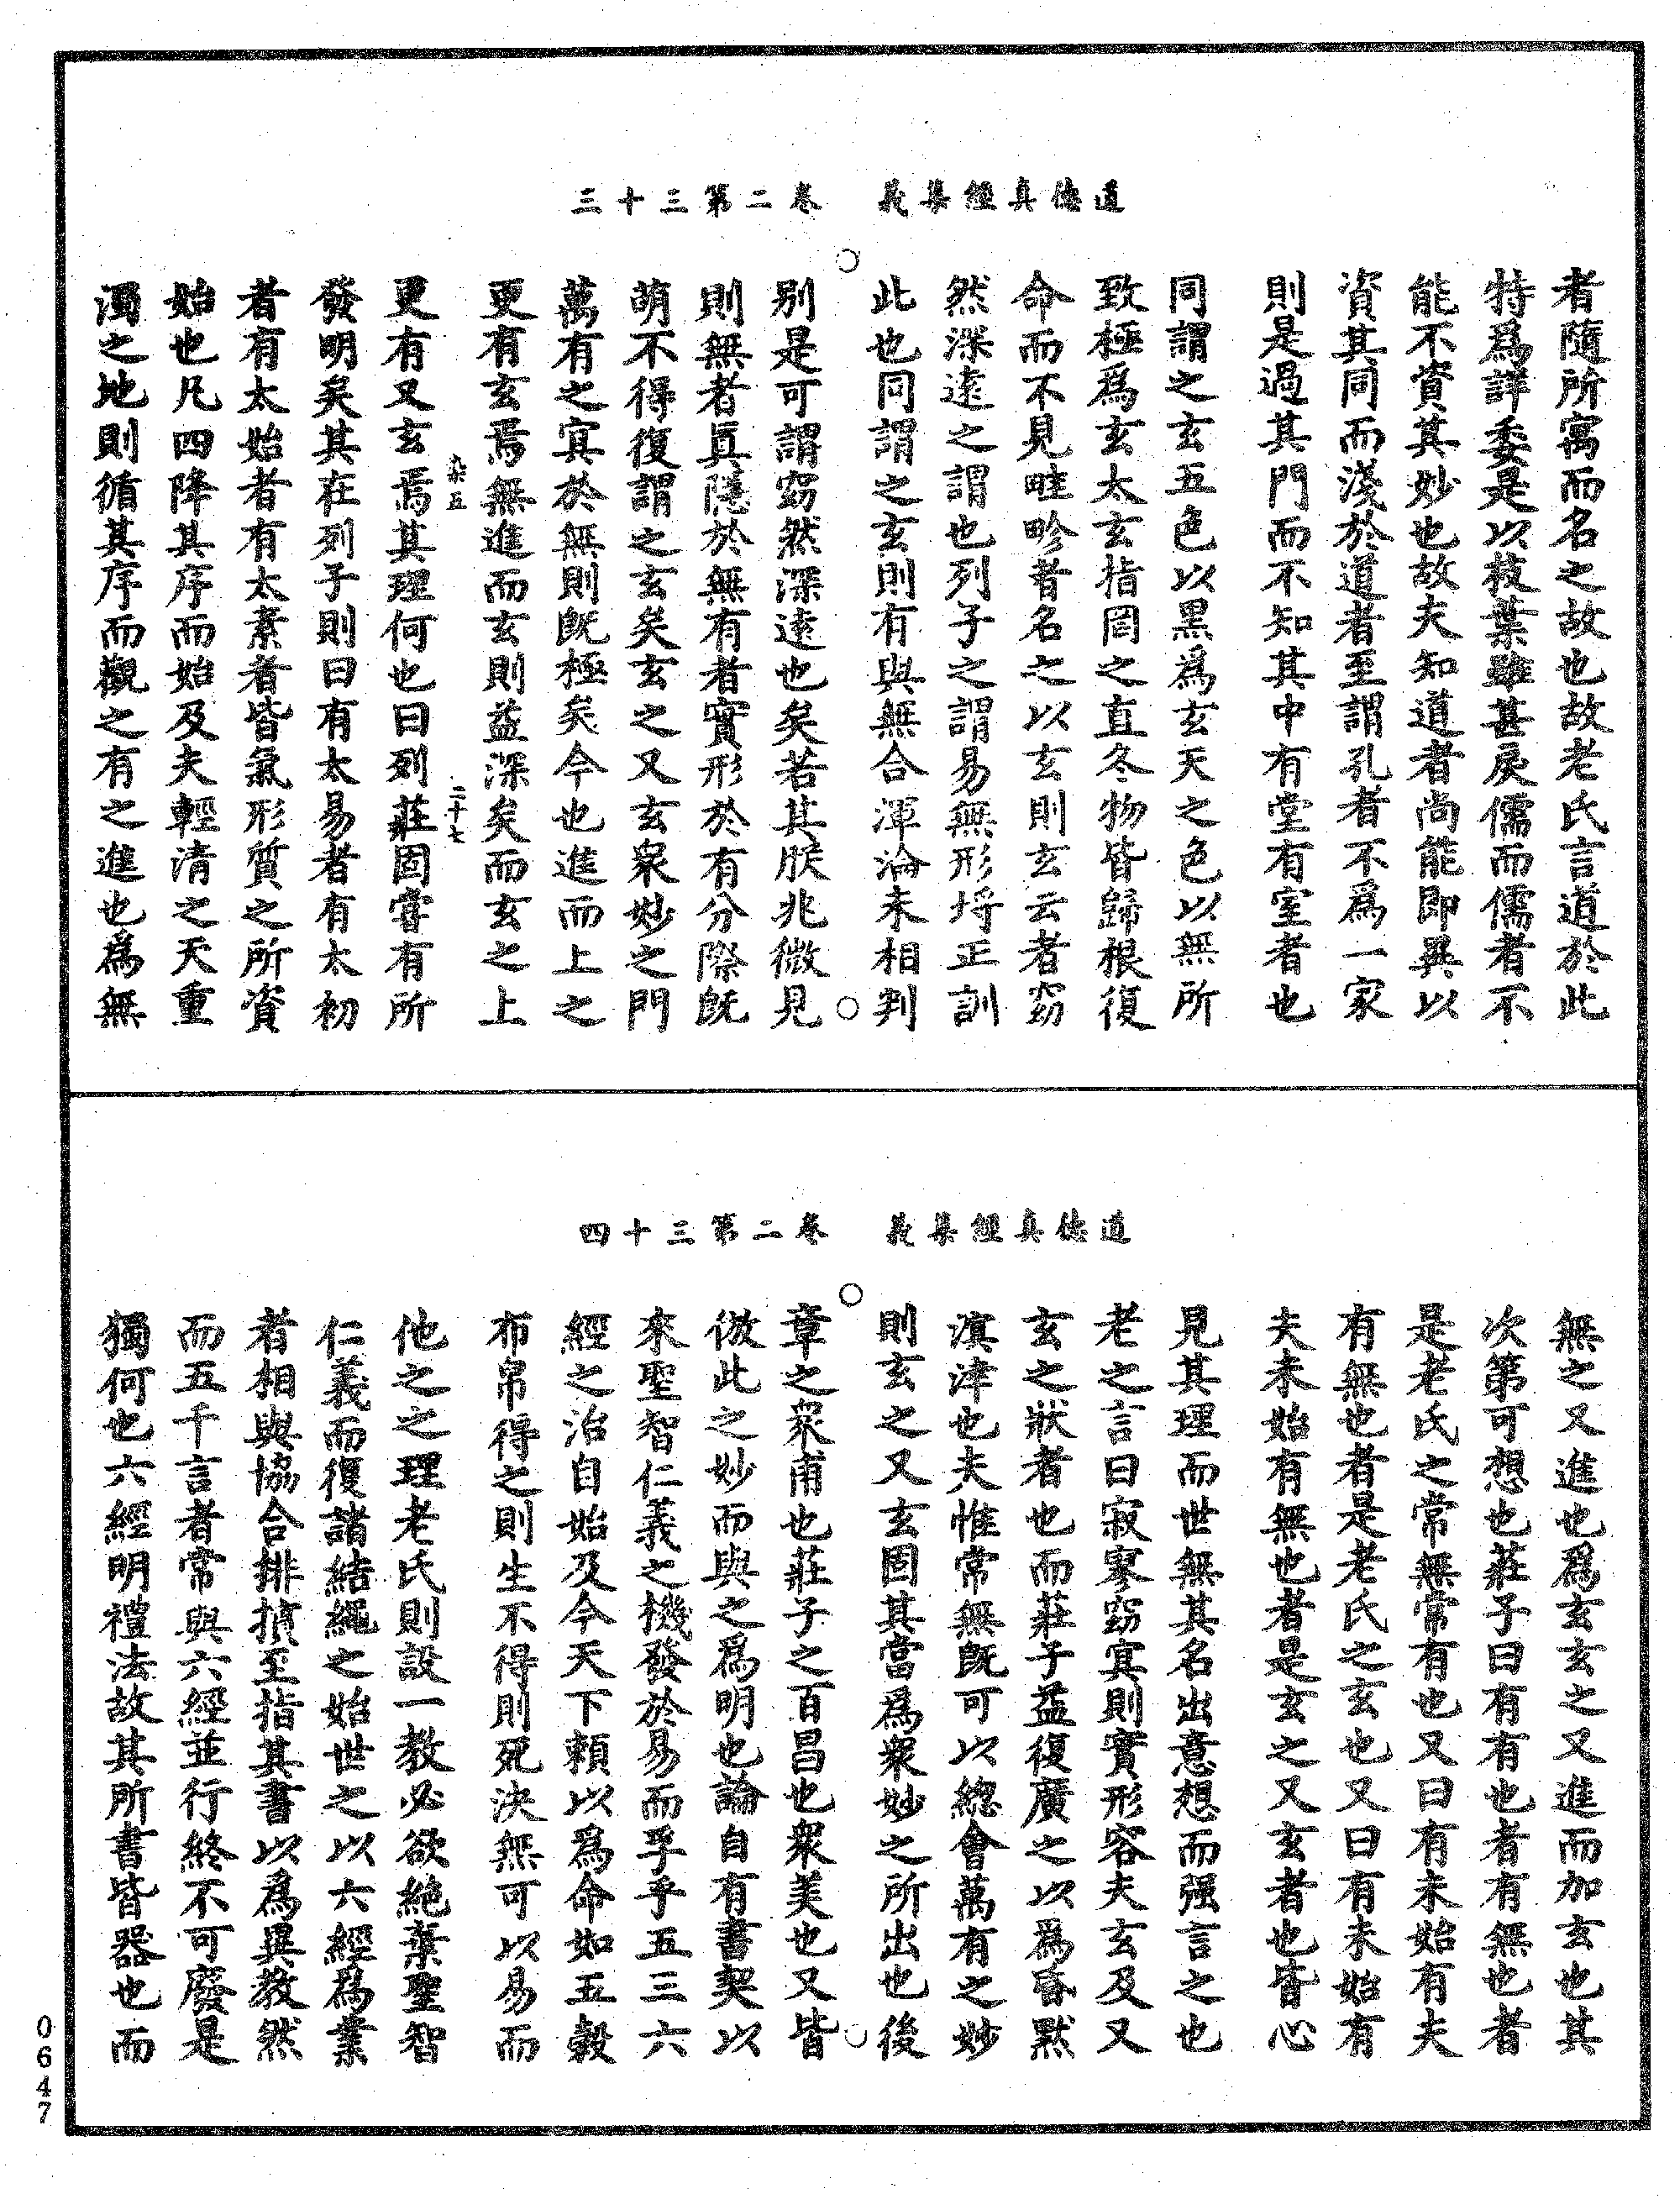 道德真經集義　卷二第三十三
者隨所寓而名之故也故老氏言道於此
特爲詳委是以枝葉雖甚戾儒而儒者不
能不資其妙也故夫知道者尚能即異以
資其同而淺於道者至謂孔者不爲一家
則是過其門而不知其中有堂有室者也
同謂之玄五色以黑爲玄天之色以無所
致極爲玄太玄指罔之直冬物皆歸根復
命而不見畦畛者名之以玄則玄云者窈
然深遠之謂也列子之謂易無形埒正訓
此也同謂之玄則有與無合渾淪未相判
別是可謂窈然深遠也矣若其朕兆微見
則無者眞隱於無有者實形於有分際旣
萌不得復謂之玄矣玄之又玄衆妙之門
萬有之㝠於無則旣極矣今也進而上之
更有玄焉無進而玄則益深矣而玄之上
更有又玄焉其理何也曰列莊固嘗有所
染五　二十七
發明矣其在列子則曰有太易者有太初
者有太始者有太素者皆氣形質之所資
始也凡四降其序而始及夫輕清之天重
濁之地則循其序而觀之有之進也爲無
道德真經集義　卷二第三十四
無之又進也爲玄玄之又進而加玄也其
次第可想也莊子曰有有也者有無也者
是老氏之常無常有也又曰有未始有夫
有無也者是老氏之玄也又曰有未始有
夫未始有無也者是玄之又玄者也皆心
見其理而世無其名出意想而强言之也
老之言曰寂寥窈㝠則實形容夫玄及又
玄之狀者也而莊子益復廣之以爲昏默
滇涬也夫惟常無旣可以總會萬有之妙
則玄之又玄固其當爲衆妙之所出也後
章之衆甫也莊子之百昌也衆美也又皆
倣此之妙而與之爲明也論自有書契以
來聖智仁義之機發於易而孚乎五三六
經之治自始及今天下頼以爲命如五穀
布帛得之則生不得則死決無可以易而
他之之理老氏則設一教必欲絶棄聖智
仁義而復諸結繩之始世之以六經為業
者相與協合排擯至指其書以爲異教然
而五千言者常與六經並行終不可廢是
獨何也六經明禮法故其所書皆器也而
0647